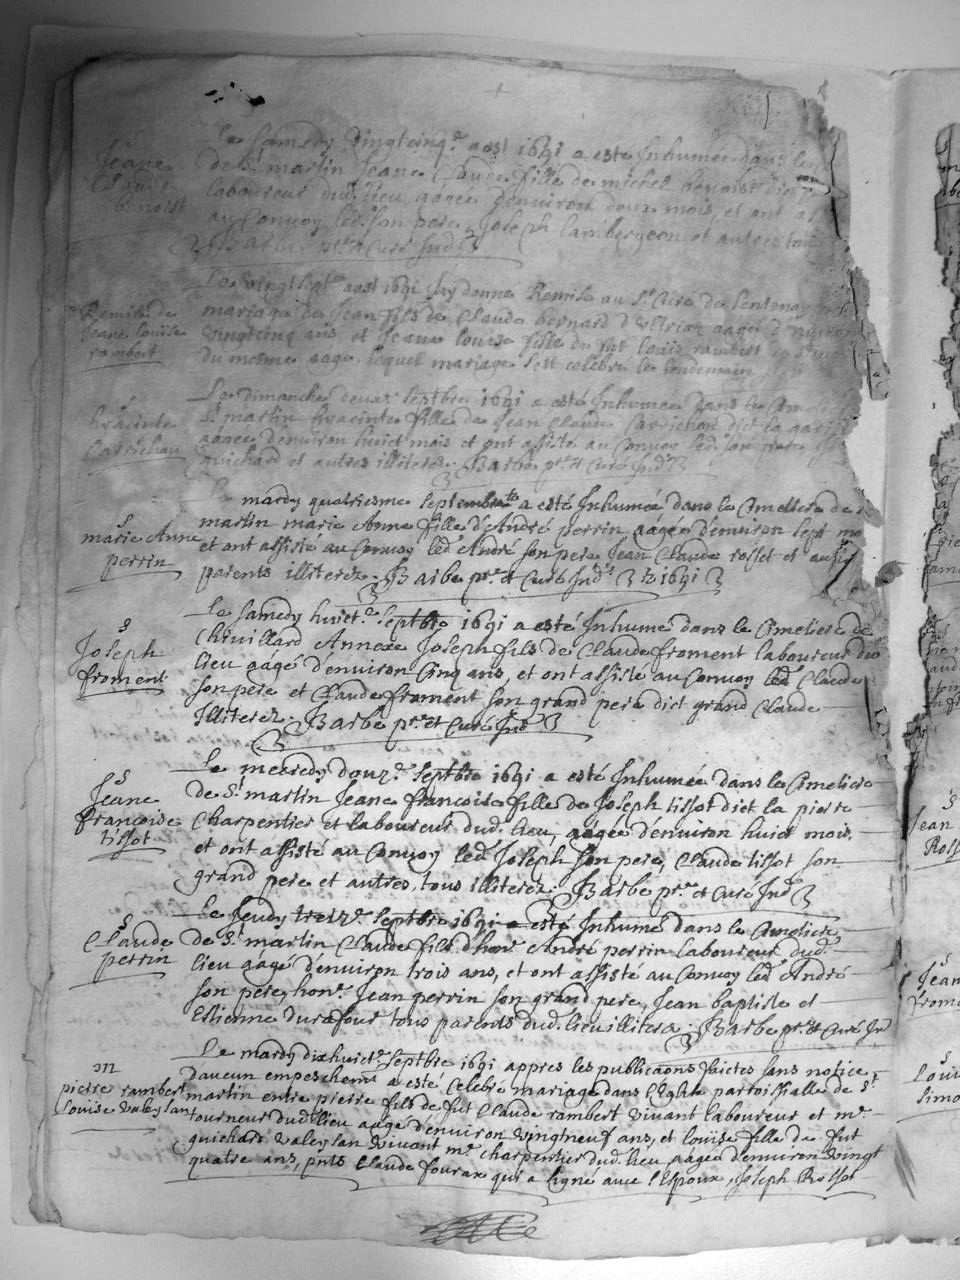 S
Jeane
Claude
benoist
Le Samedy vingtcinq.e aost 1691 a esté Inhumée dans le
de St. martin Jeane Claude fille de michel benoist dict
laboureur dud. lieu aagée d'environ deux mois, et ont
au Convoy led. son pere, Joseph Lambergeon et autres tous
Barbe ptr. et Curé Ind.
Remise de
Jeane Louise
rambert
Le vingtsept.e aost 1691 J'ay donné Remise au Sr. Curé de Lentenay
mariage de Jean fils de Claude bernard d'Vltriaz aagé d'environ
vingtcinq ans et Jeane Louise fille du fut Louis rambert
du mesme aage, lequel mariage s'est celebré le lendemain
S
hyacinte
Carrichan
Le dimanche deuxe. septbre 1691 a esté Inhumée dans le Cimetiere
St. martin hyacinte fille de Jean Claude Carrichon dict la
aagée d'environ huict mois et ont assisté au Convoy led. son pere
guichard et autres illiterez. Barbe ptr. et Curé Ind.
S
marie Anne
perrin
Le mardy quatriesme septembre a esté Inhumée dans le Cimetiere de St.
martin marie Anne fille d'André perrin aagée d'environ sept
et ont assisté au Convoy led. André son pere Jean Claude rosset et
parents illiterez. Barbe ptr. et Curé Ind. 1691
S
Joseph
froment
Le samedy huict.e septbre 1691 a esté Inhumé dans le Cimetiere de
Chivillard Annexe Joseph fils de Claude froment laboureur dud.
lieu aagé d'environ Cinq ans, et ont assisté au Convoy led. Claude
son pere et Claude froment son grand pere dict grand Claude
Illiterez. Barbe ptr. et Curé Ind.
S
Jeane
francoise
tissot
Le mecredy douz.e septbre 1691 a esté Inhumée dans le Cimetiere
de St. martin Jeane francoise fille de Joseph tissot dict la pierre
Charpentier et laboureur dud. lieu, aagée d'environ huict mois,
et ont assisté au Convoy led. Joseph son pere, Claude tissot son
grand pere et autres, tous illiterez. Barbe ptr. et Curé Ind.
S
Claude
perrin
Le Jeudy treiz.e septbre 1691 a esté Inhumé dans le Cimetiere
de St. martin Claude fils d'hon. André perrin laboureur dud.
lieu aagé d'environ trois ans, et ont assisté au Convoy led. André
son pere, hon. Jean perrin son grand pere, Jean baptiste et
Estienne durafour tous parents dud. lieu illitera. Barbe ptr. et Curé Ind
m
pierre rambert
Louise valeysan
Le mardy dixhuict.e septbre 1691 appres les publicaons faictes sans notice
daucun empeschemt. a esté Celebré mariage dans l'Eglise parroissialle de St.
martin entre pierre fils de fut Claude rambert vivant laboureur et me.
tourneur dud. lieu aagé d'environ vingtneuf ans, et Louise fille de fut
guichard valeysan vivant me. charpentier dud. lieu aagée d'environ vingt
quatre ans, pnts Claude fourax qui a signé avec l'Espoux, Joseph Rosset
S
Jean
Ross
S
Jean
from
S
Loui
Simo